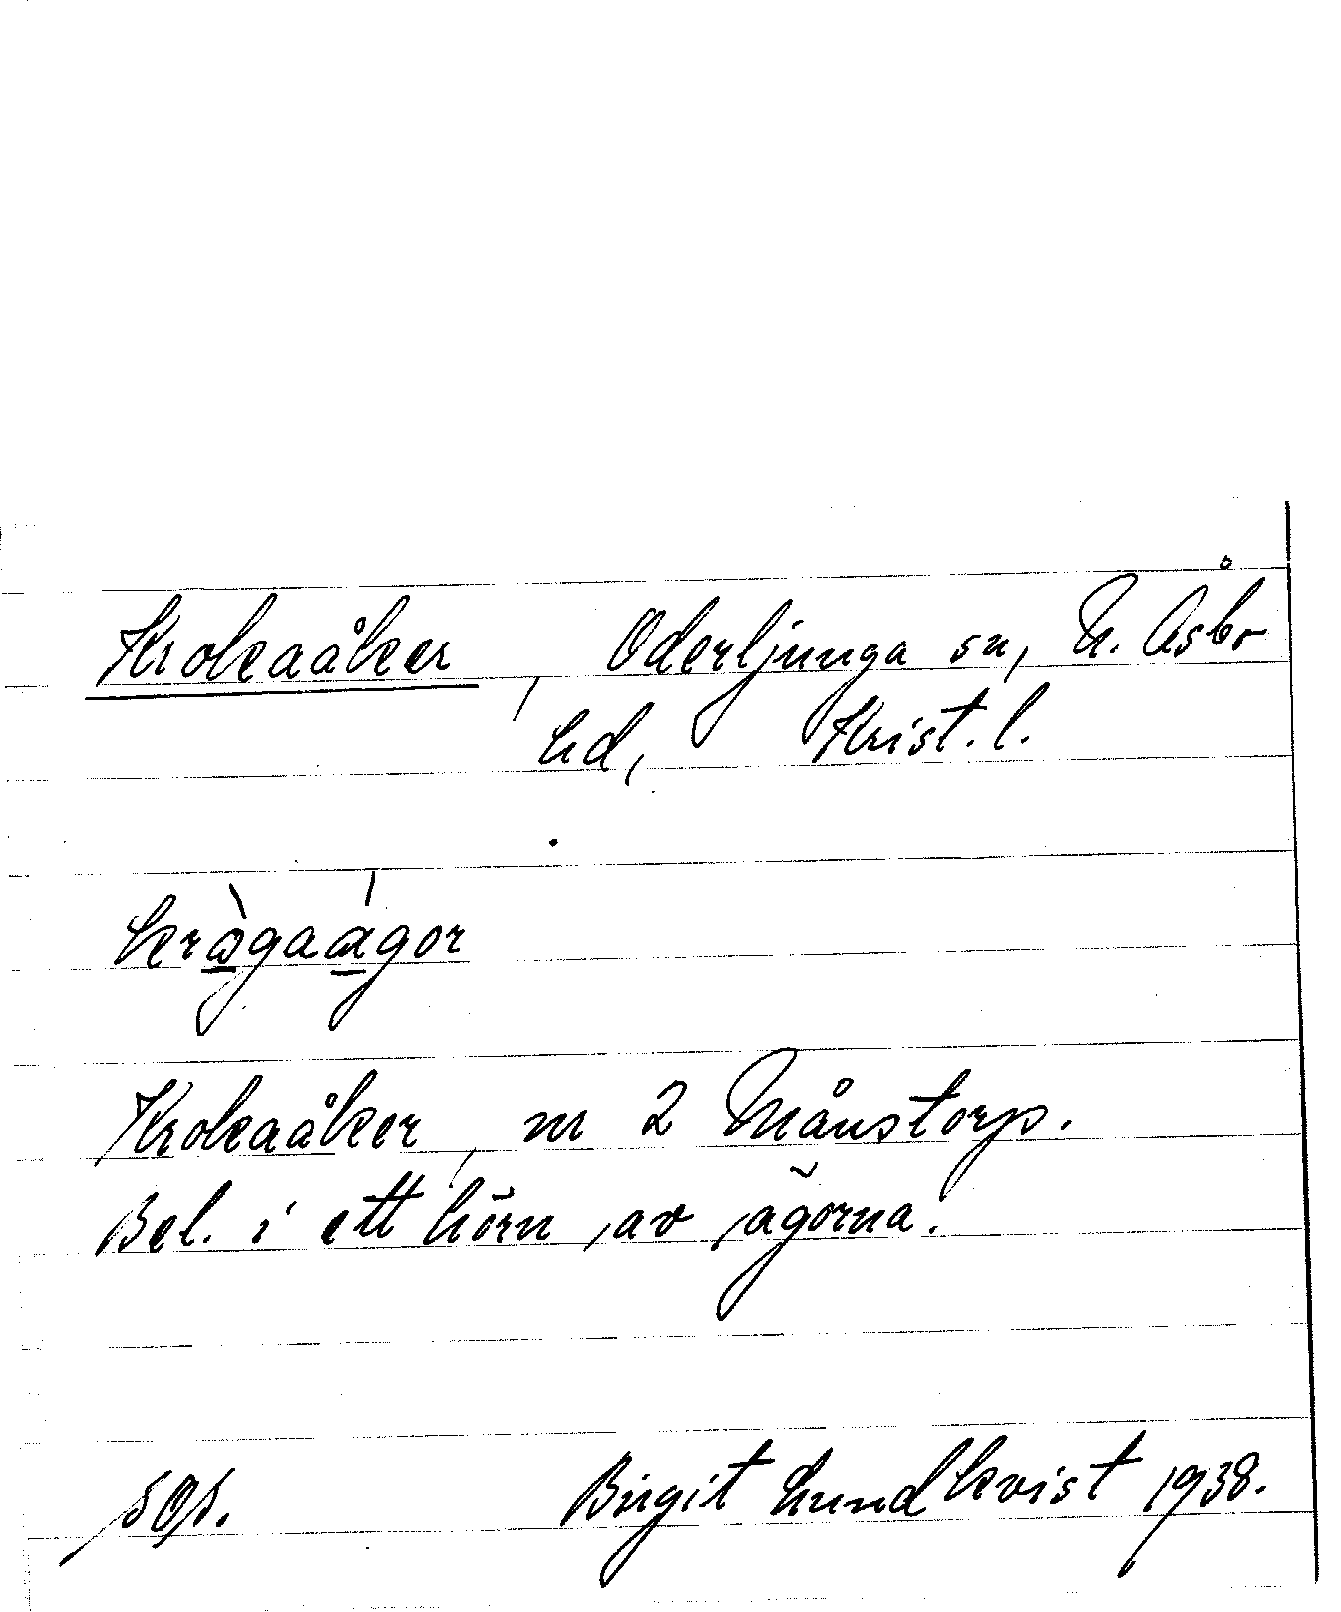 Krokaåker, Oderljunga sn, N. Åsbo
hd, Krist. l.
Krokaåker, nr 2 Månstorp.
Bel. i ett hörn av ägorna.
Birgit Lundkvist 1938.